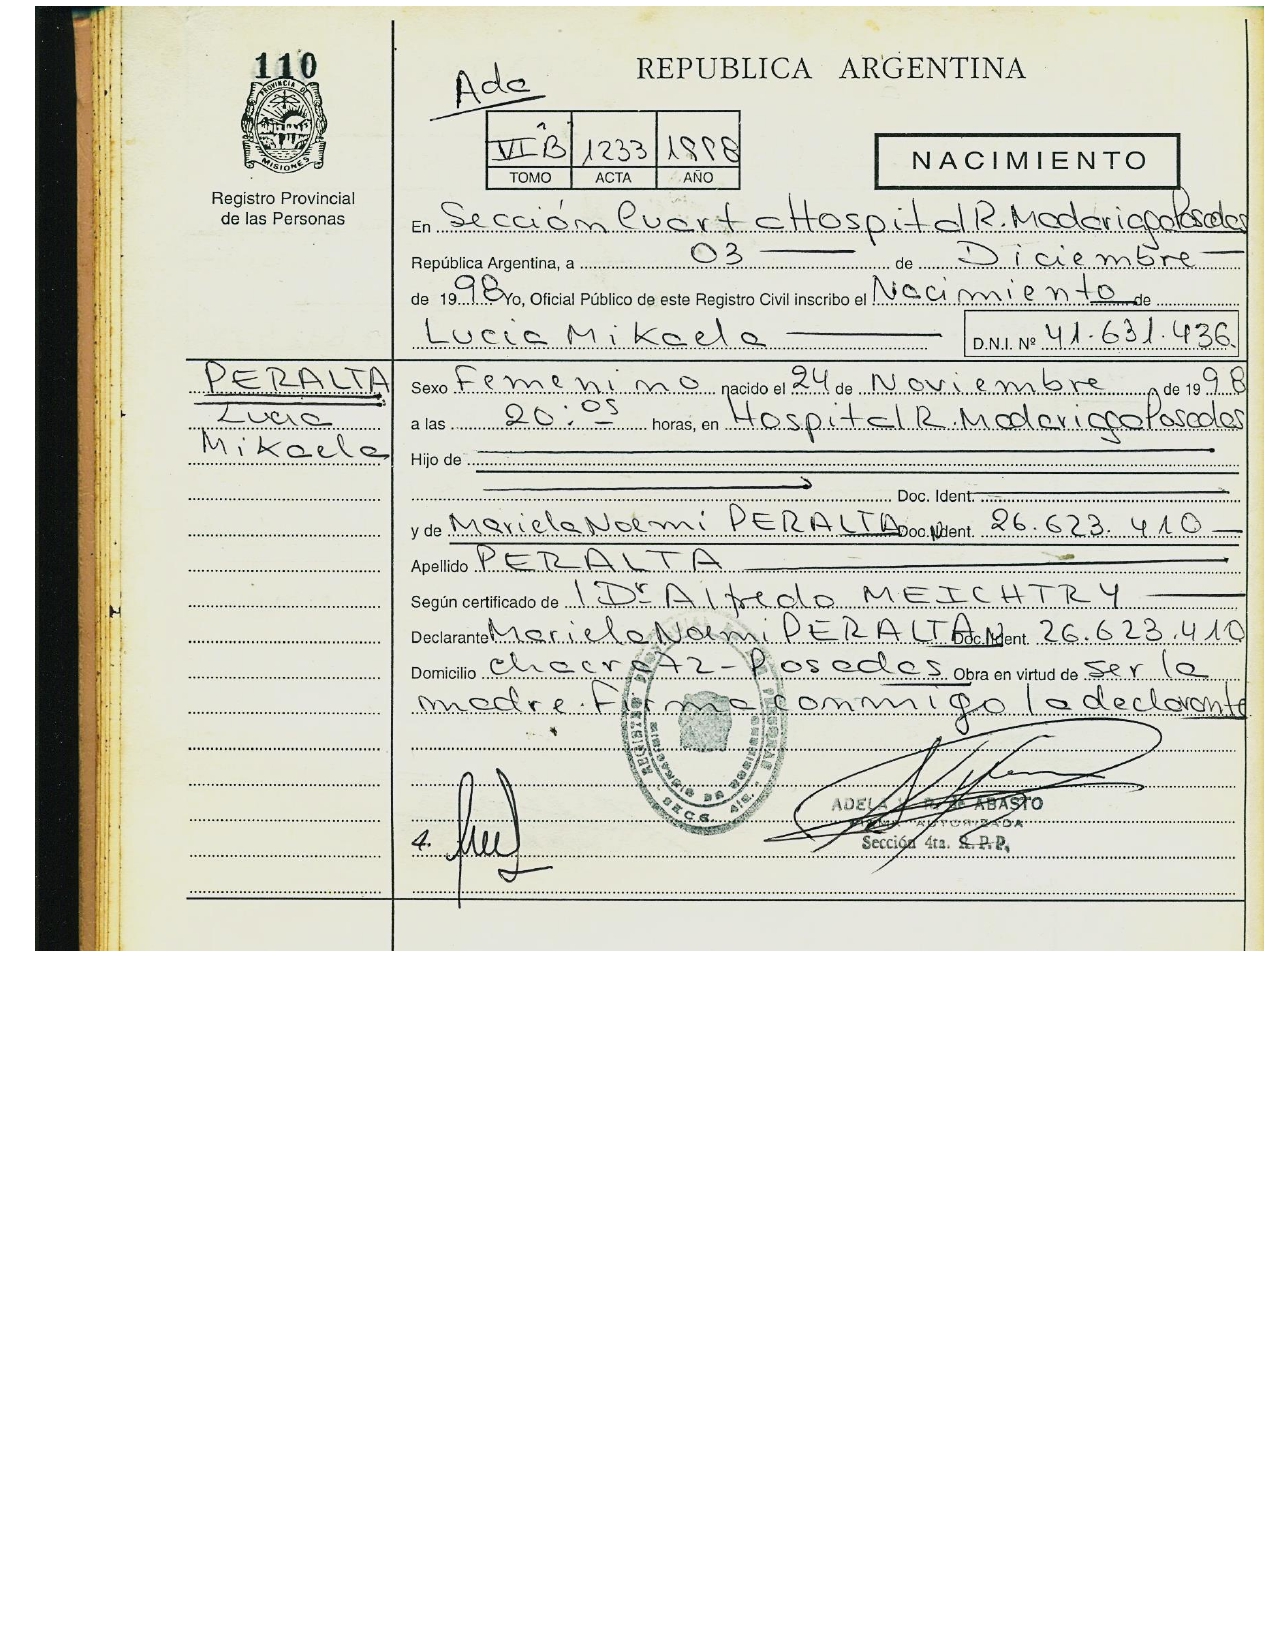 110
Ada
REPUBLICA ARGENTINA
PROVINCIA DE MISIONES
VI B 1233 1998
TOMO ACTA AÑO
NACIMIENTO
Registro Provincial
de las Personas
En Sección Cuarta Hospital R. Madariaga Posadas
República Argentina, a 03 de Diciembre
de 1998 Yo, Oficial Público de este Registro Civil inscribo el Nacimiento de
Lucia Mikaela D.N.I. Nº 41.631.436
PERALTA
Lucia
Mikaela
Sexo Femenino nacido el 24 de Noviembre de 1998
a las 20:05 horas, en Hospital R. Madariaga Posadas
Hijo de
Doc. Ident.
y de Mariela Noemi PERALTA Doc. Ident. 26.623.410
Apellido PERALTA
Según certificado de Dr Alfredo MEICHTRY
Declarante Mariela Noemi PERALTA Doc. Ident. 26.623.410
Domicilio chacra 72 - Posadas Obra en virtud de ser la
madre. Firma conmigo la declarante
ADELA ABASTO
FIRMA AUTORIZADA
Sección 4ta. R.P.P.
4.